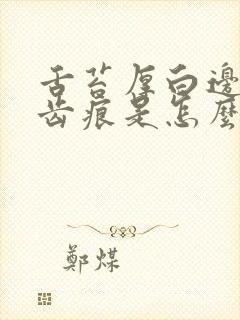 舌苔厚白邊
齿痕是怎麼
鄭煤